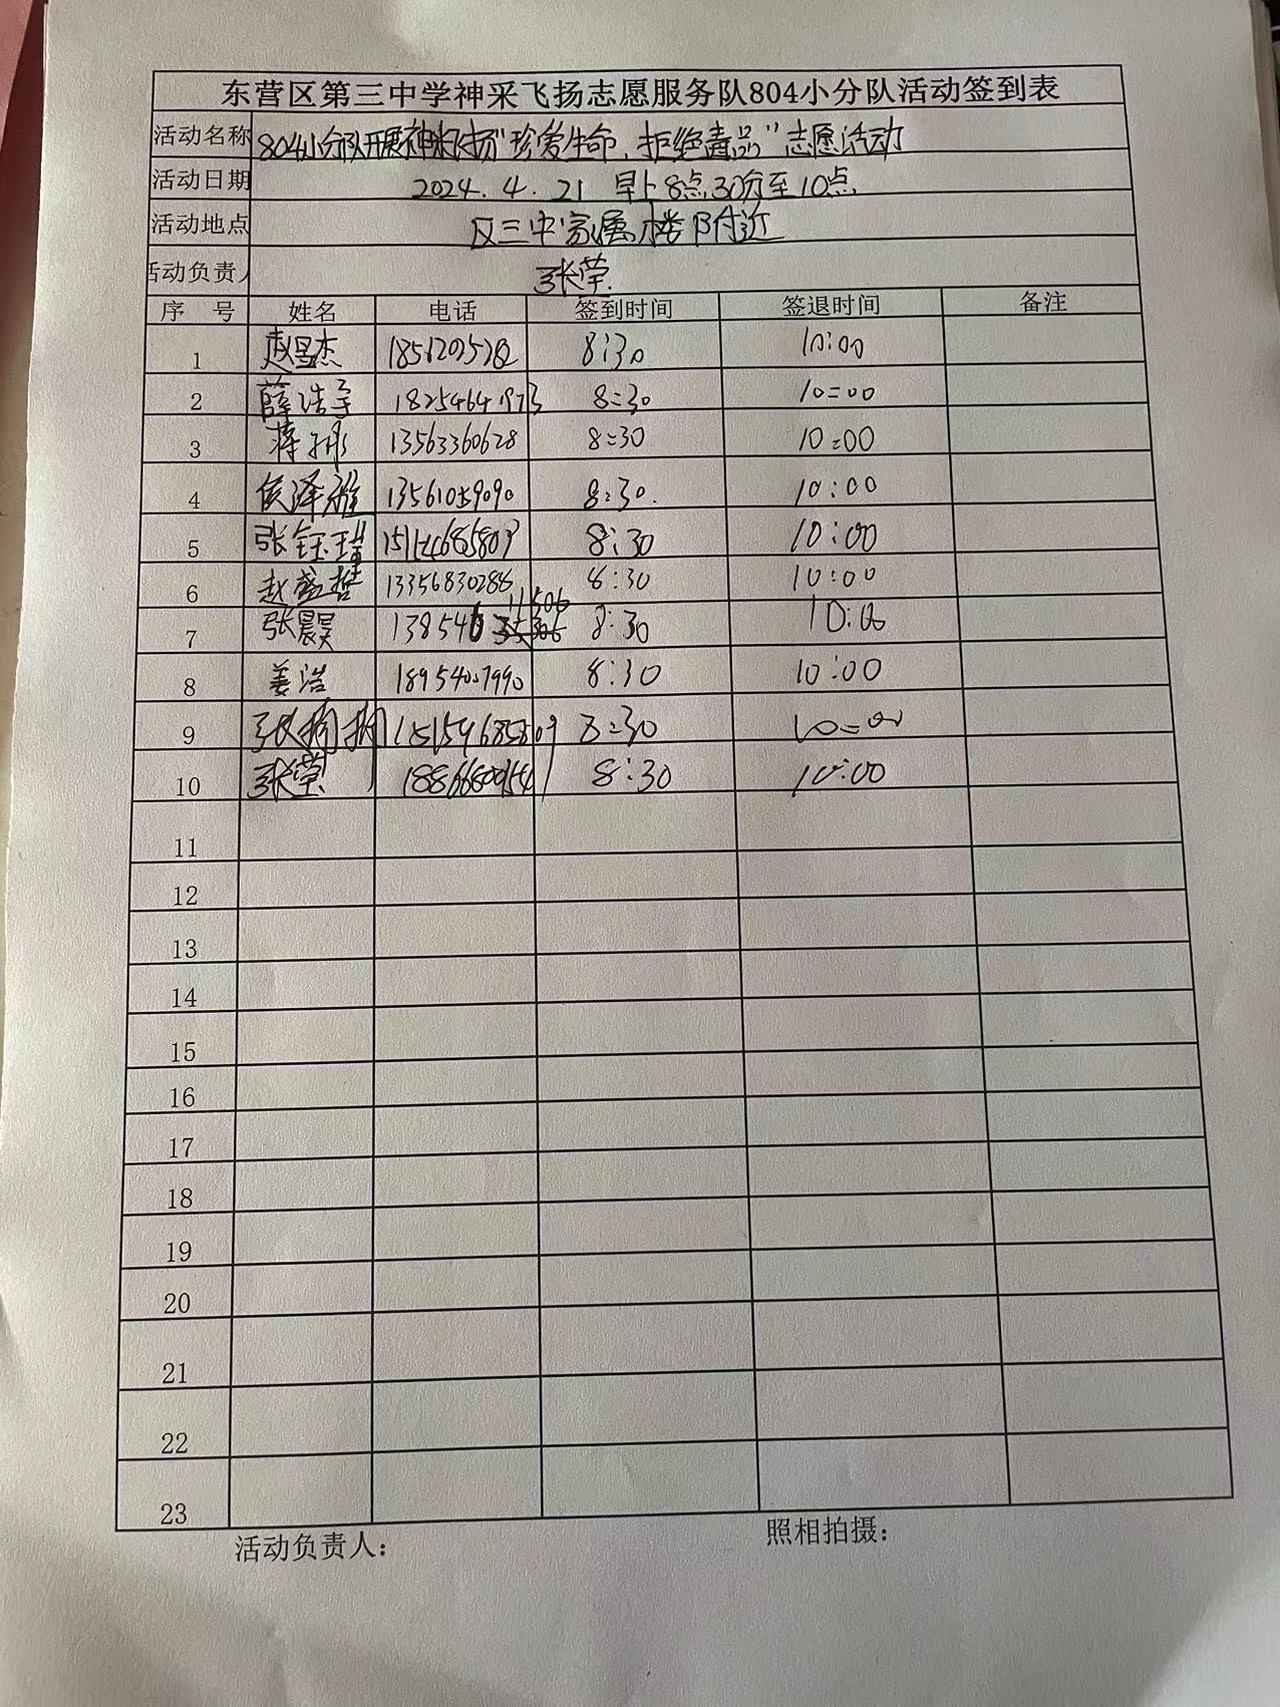 东营区第三中学神采飞扬志愿服务队804小分队活动签到表
活动名称 804小分队开展神采飞扬"珍爱生命、拒绝毒品"志愿活动
活动日期 2024.4.21 早上8点30分至10点
活动地点 区三中家属楼附近
活动负责人 张荣
序 号 姓名 电话 签到时间 签退时间 备注
1 赵昱杰 8:30 10:00
2 薛浩宇 18254641973 8:30 10:00
3 蒋 13563360628 8:30 10:00
4 侯泽雄 13561059090 8:30. 10:00
5 张钰 8:30 10:00
6 赵盛哲 13356830288 8:30 10:00
7 张晨昊 8:30 10:00
8 姜浩 18954007990 8:30 10:00
9 张 8:30 10:00
10 张荣 8:30 10:00
11
12
13
14
15
16
17
18
19
20
21
22
23
活动负责人： 照相拍摄：